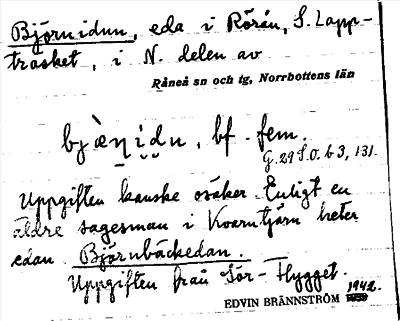 Björnidun, eda i Rörån, S. Lapp-
träsket, i N. delen av
Råneå sn och tg, Norrbottens län
bjæ̀ṇi̯du, bf. fem.
G. 29 S.O. b 3, 131.
Uppgiften kanske osäker. Enligt en
äldre sagesman i Kvarntjärn heter
edan Björnbäckedan.
Uppgiften från Sör-Flygget.
1942.
EDVIN BRÄNNSTRÖM